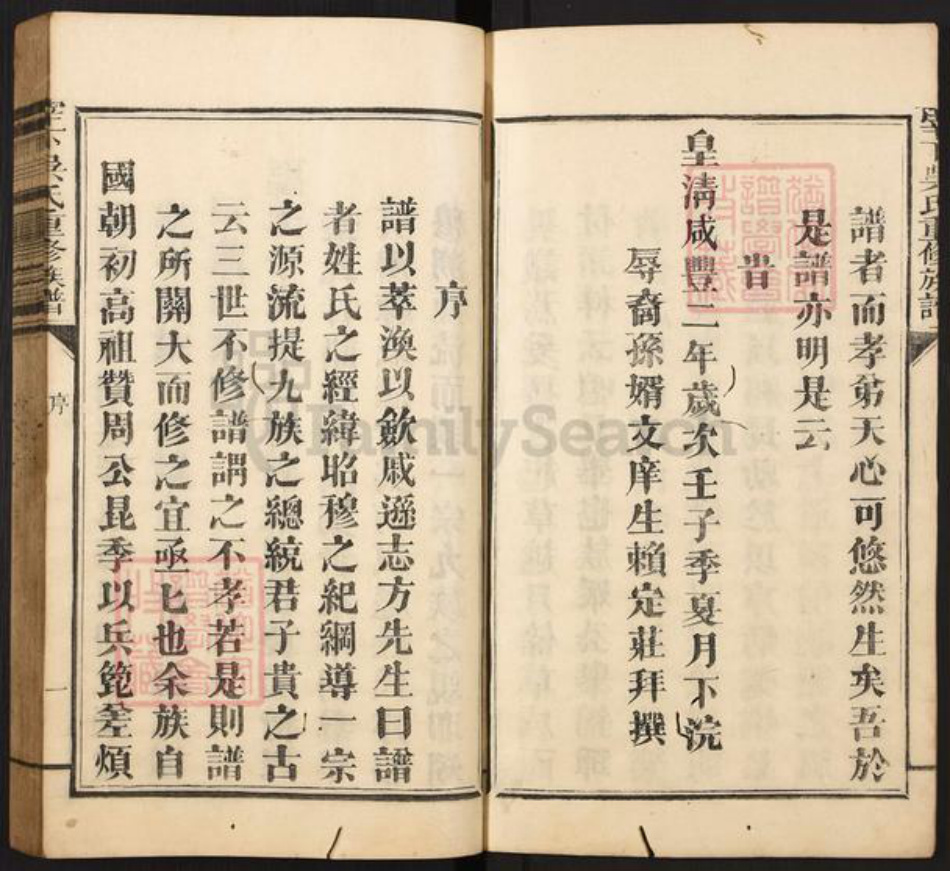 譜者而孝弟天心可悠然生矣吾於
是譜亦明是云
旹
皇清咸豐二年歲次壬子季夏月下浣
辱裔孫婿文庠生賴定莊拜撰
序
譜以萃渙以歛戚遜志方先生曰譜
者姓氏之經緯昭穆之紀綱導一宗
之源流提九族之總統君子貴之古
云三世不修譜謂之不孝若是則譜
之所關大而修之宜亟匕也余族自
國朝初高祖贊周公昆季以兵燹差煩
吳氏重修族譜
序
一
FamilySearch